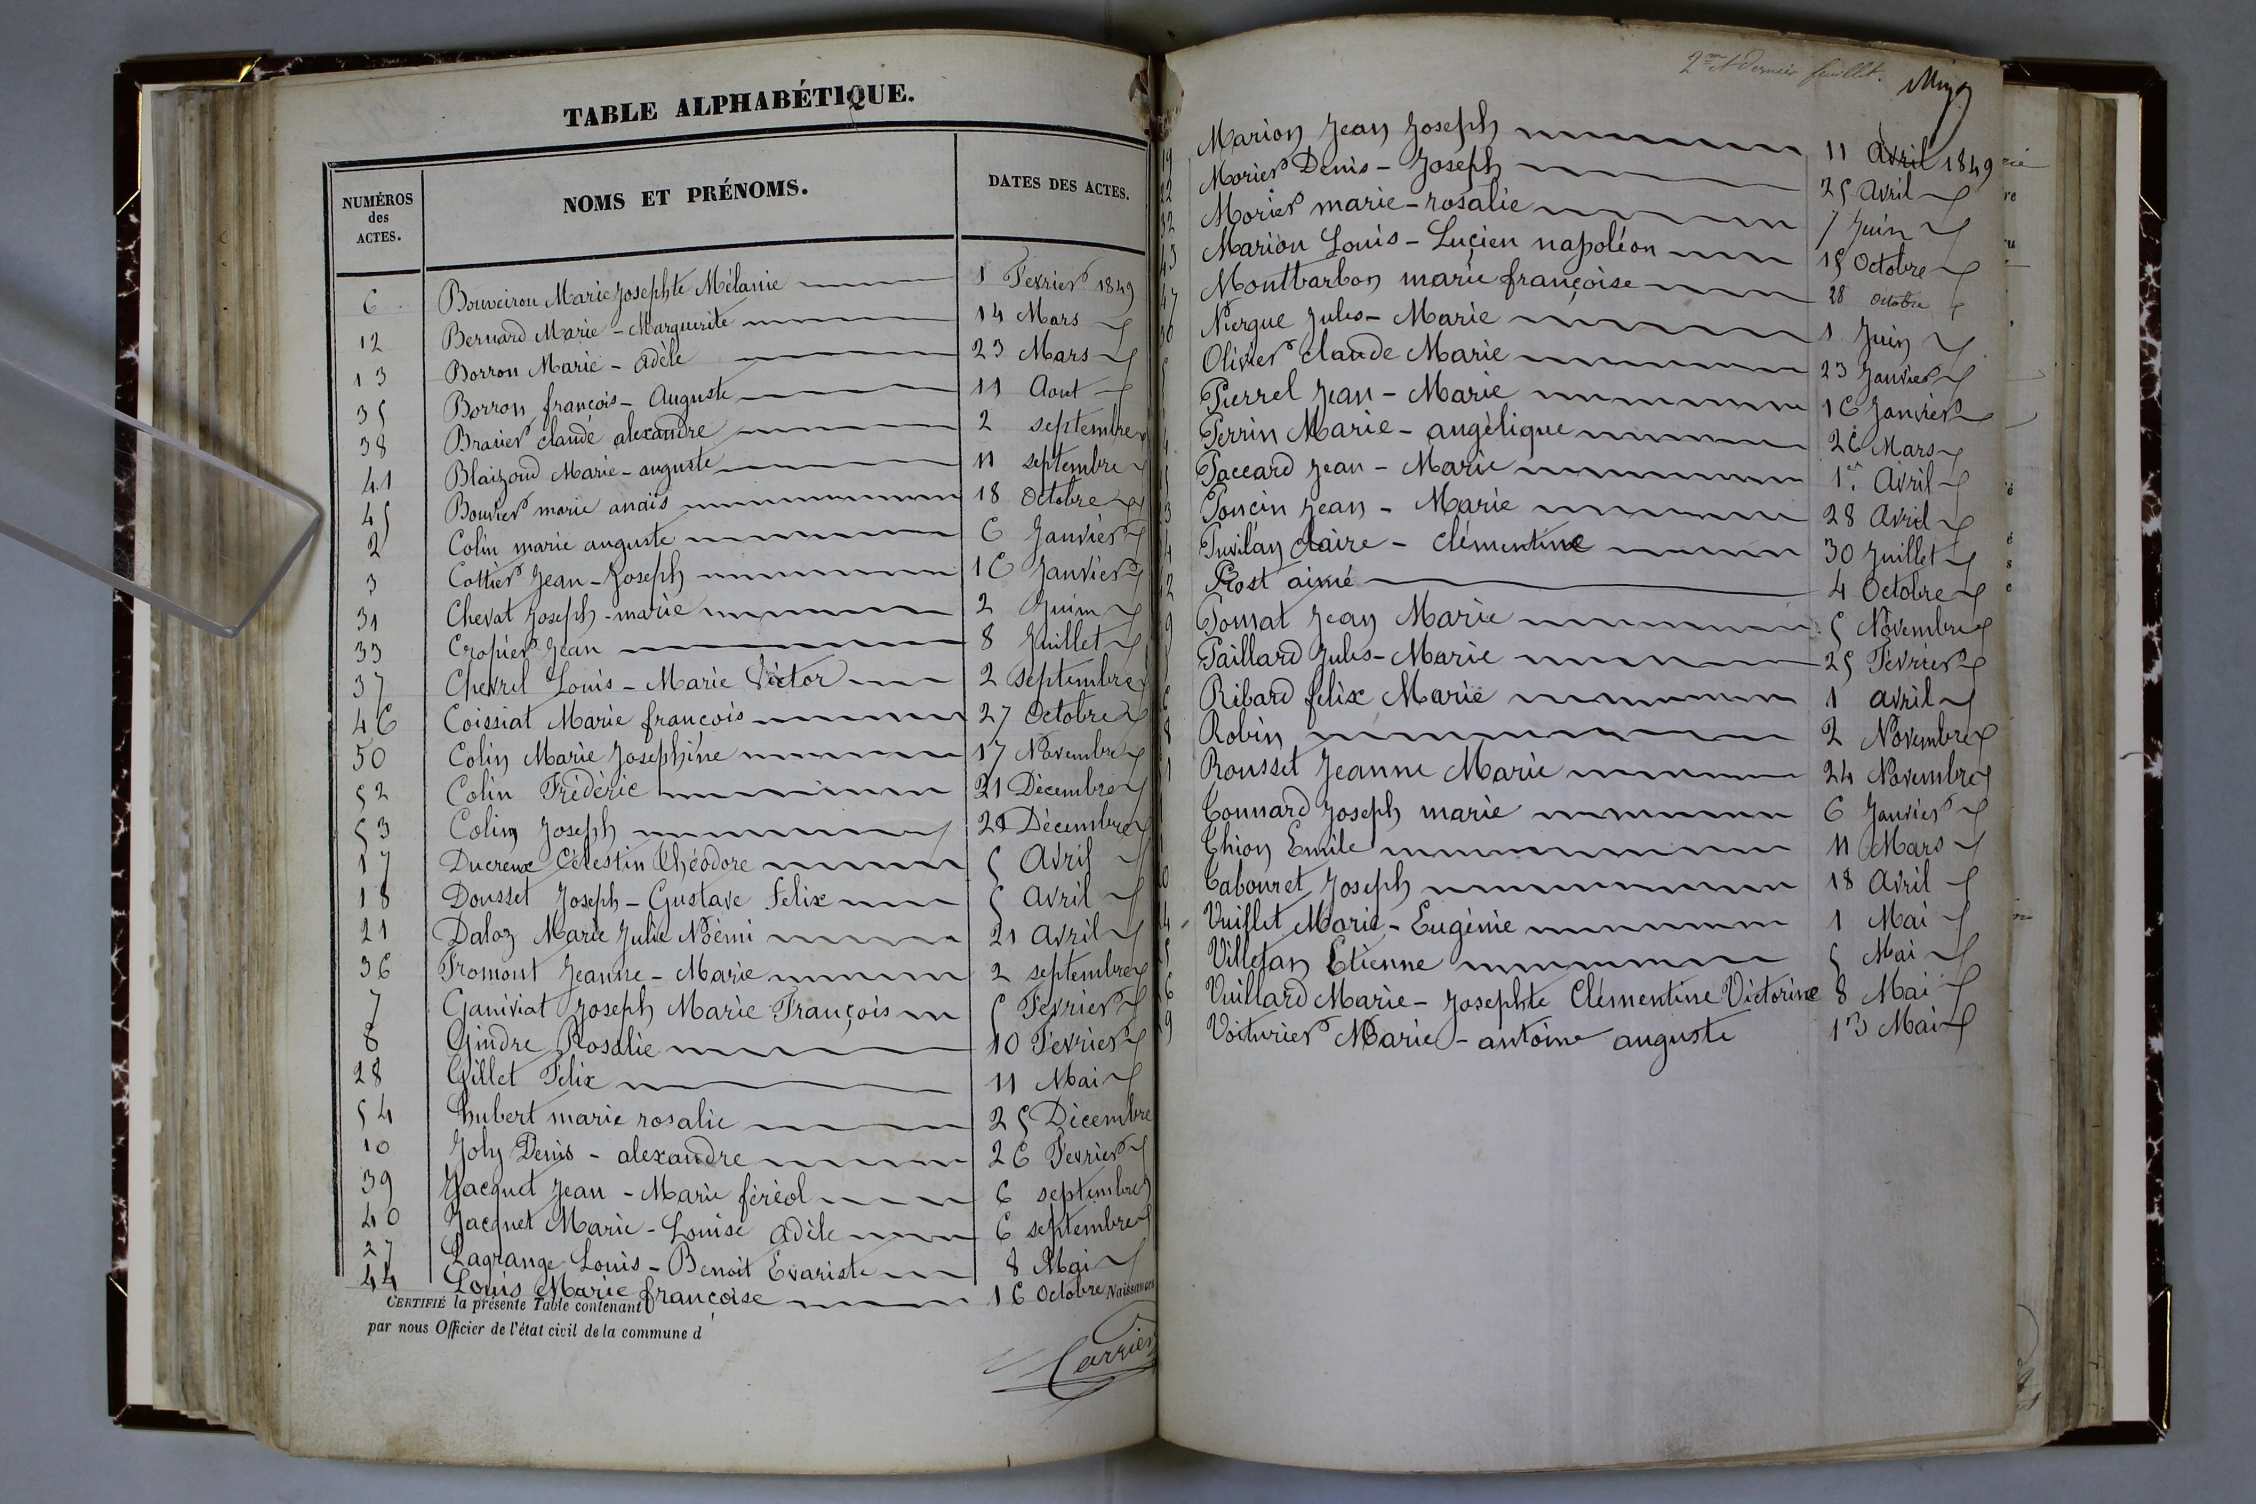 TABLE ALPHABÉTIQUE.
NUMÉROS des ACTES. NOMS ET PRÉNOMS. DATES DES ACTES.
6 Bouveirou Marie Josephte Mélanie 1 Fevrier 1849
12 Bernard Marie - Marguerite 14 Mars
13 Borron Marie - adèle 23 Mars
35 Borron françois - Auguste 11 Aout
38 Bravier claude alexandre 2 septembre
41 Blaizond Marie - auguste 11 septembre
45 Bouvier marie anais 18 Octobre
2 Colin marie auguste 6 Janvier
3 Cottier Jean - Joseph 16 Janvier
31 Chevat Joseph - marie 2 Juin
33 Cropier Jean 8 Juillet
37 Chevrel Louis - Marie Victor 2 septembre
46 Coissiat Marie françois 27 Octobre
50 Colin Marie Josephine 17 Novembre
52 Colin Fréderic 21 Décembre
53 Colin Joseph Décembre
17 Ducreux Célestin théodore 5 Avril
18 Dousset Joseph - Gustave Felix 5 avril
21 Daloz Marie Julie Noémi 21 avril
36 Fromont Jeanne - Marie 2 septembre
7 Ganiviat Joseph Marie François 5 Fevrier
8 Gindre Rosalie 10 Fevrier
28 Gillet Felix 11 Mai
54 hubert marie rosalie 25 Décembre
10 Joly Denis - alexandre 26 Fevrier
39 Jacquet Jean - Marie féréol 6 septembre
40 Jacquet Marie - Louise adèle 6 septembre
27 Lagrange Louis - Benoit Evariste 8 Mai
44 Louis Marie françoise 16 Octobre Naissances
CERTIFIÉ la présente Table contenant
par nous Officier de l'état civil de la commune d
Carrier
2me et dernier feuillet.
19 Marion Jean Joseph 11 avril 1849
22 Morier Denis - Joseph 25 avril
32 Morier marie - rosalie 7 Juin
43 Marion Louis - Lucien napoléon 15 Octobre
47 Montbarbon marie françoise 28 octobre
30 Niergue Jules - Marie 1 Juin
Olivier claude Marie 23 Janvier
Pierrel Jean - Marie 16 Janvier
Perrin Marie - angélique 26 Mars
Paccard Jean - Marie 1er Avril
Poncin Jean - Marie 28 avril
claire - clémentine 30 Juillet
Prost aimé 4 Octobre
Ponsat Jean Marie 5 Novembre
Paillard Jules - Marie 25 Fevrier
Ribard felix Marie 1 avril
Robin 2 Novembre
Rousset Jeanne Marie 24 Novembre
Tonnard Joseph marie 6 Janvier
Thion Emile 11 Mars
Tabouret Joseph 18 avril
Vuillet Marie - Eugénie 1 Mai
Villefan Etienne 5 Mai
Vuillard Marie - Josephte Clémentine Victorine 8 Mai
Voiturier Marie - antoine auguste 13 Mai